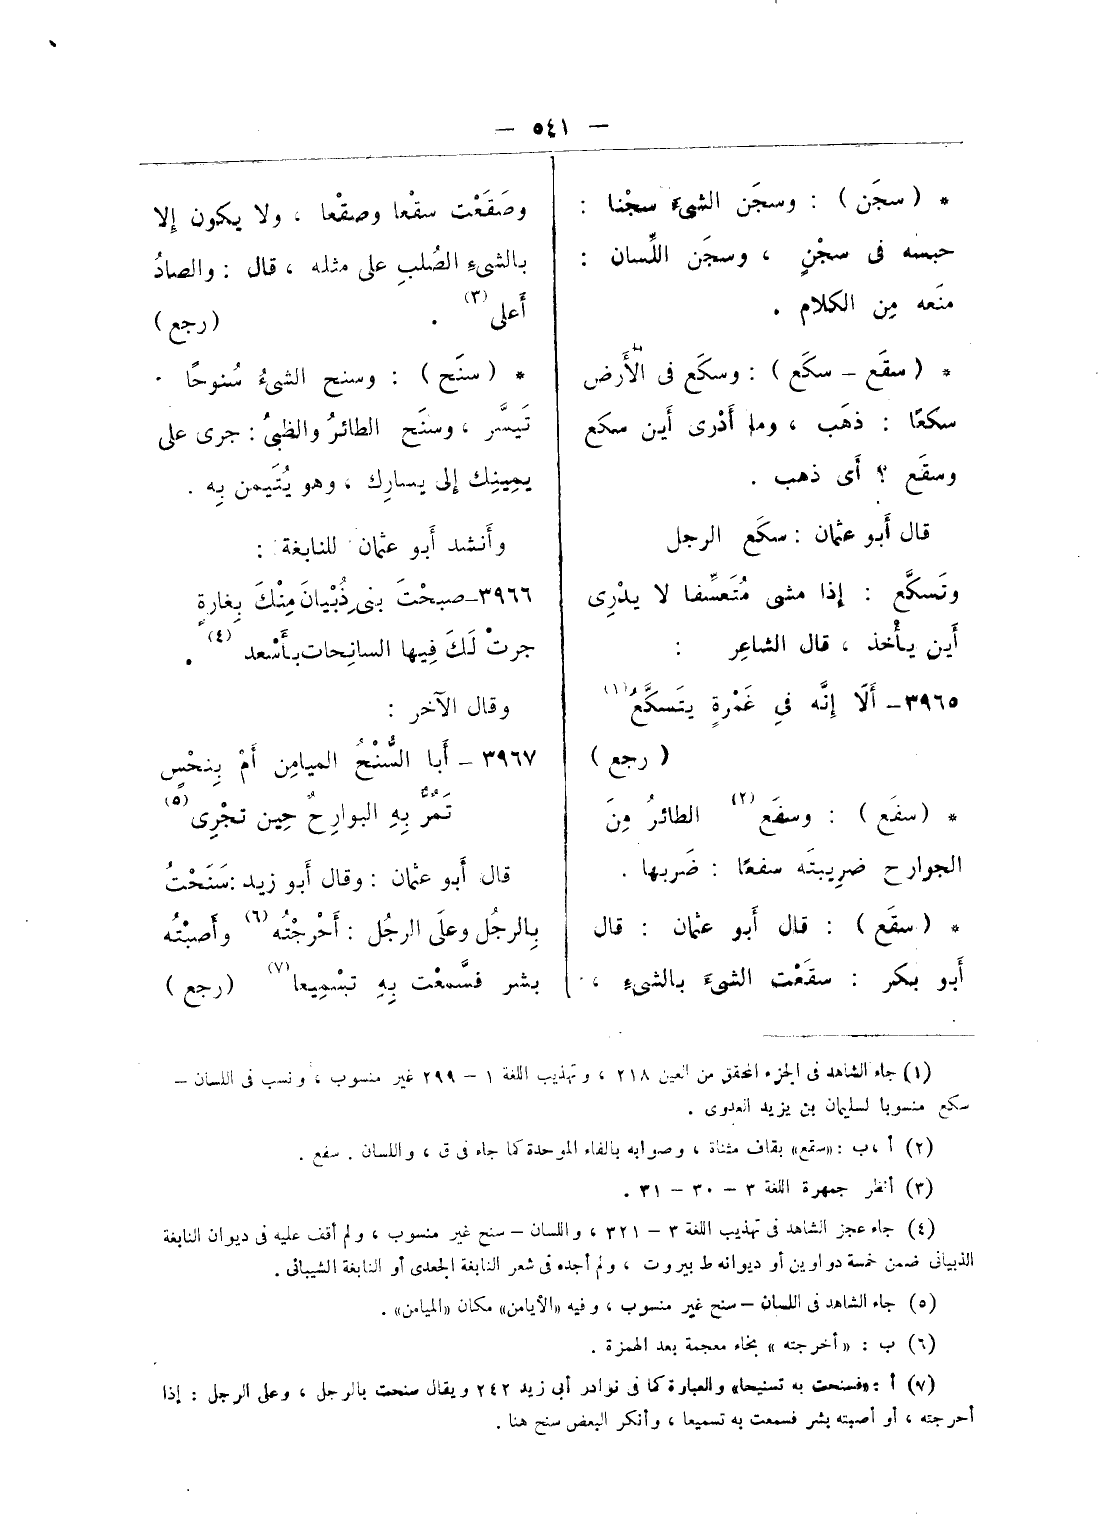 — ٥٤١ —
* ( سجَن ) : وسجَن الشىء سجْنا :
حبسه فى سجْنٍ ، وسجَن اللِّسان :
منَعه مِن الكلام .
* ( سقَع – سكَع ) : وسكَع فى الأَرض
سكعًا : ذهَب ، وما أَدْرى أَين سكع
وسقَع ؟ أَى ذهب .
قال أَبو عثمان : سكَع الرجل
وتَسكَّع : إِذا مشى مُتَعسِّفا لا يدْرِى
أَين يأْخذ ، قال الشاعِر :
٣٩٦٥ – أَلَا إِنَّه فى غَمْرةٍ يتَسكَّعُ (١)
( رجع )
* ( سفَع ) : وسفَع (٢) الطائرُ مِنَ
الجوارح ضرِيبتَه سفعًا : ضَربها .
* ( سقَع ) : قال أَبو عثمان : قال
أَبو بكر : سقَعْت الشىءَ بالشىءِ ،
وصَقَعْت سقْعا وصقْعا ، ولا يكون إلا
بالشىءِ الصُلبِ على مثله ، قال : والصادُ
أَعلى (٣) . ( رجع )
* ( سنَح ) : وسنح الشىءُ سُنوحًا .
تَيسَّر ، وسنَح الطائرُ والظبىُ : جرى على
يمِينِك إلى يسارِك ، وهو يُتَيمن بِه .
وأَنشد أَبو عثمان للنابغة :
٣٩٦٦ – صبحْتَ بنى ذُبْيانَ مِنْكَ بِغارةٍ
جرتْ لَكَ فِيها السانِحات بأَسْعد (٤) .
وقال الآخر :
٣٩٦٧ – أَبا السُّنْحُ الميامِن أَمْ بِنحْسٍ
تَمُرُّ بِهِ البوارِحُ حِين تجْرِى (٥)
قال أَبو عثمان : وقال أَبو زيد : سَنَحْتُ
بِالرجُل وعلَى الرجُل : أَحْرجْتُه (٦) وأَصبْتُه
بشر فسَّمعْت بِهِ تسْمِيعا (٧) ( رجع )
(١) جاء الشاهد فى الجزء المحقق من العين ٢١٨ ، وتهذيب اللغة ١ – ٢٩٩ غير منسوب ، ونسب فى اللسان –
سكع منسوبا لسليمان بن يزيد العدوى .
(٢) أ ، ب : «سقع» بقاف مثناة ، وصوابه بالفاء الموحدة كما جاء فى ق ، واللسان . سفع .
(٣) أنظر جمهرة اللغة ٣ – ٣٠ – ٣١ .
(٤) جاء عجز الشاهد فى تهذيب اللغة ٣ – ٣٢١ ، واللسان – سنح غير منسوب ، ولم أقف عليه فى ديوان النابغة
الذبيانى ضمن خمسة دواوين أو ديوانه ط بيروت ، ولم أجده فى شعر النابغة الجعدى أو النابغة الشيبانى .
(٥) جاء الشاهد فى اللسان – سنح غير منسوب ، وفيه «الأيامن» مكان «الميامن» .
(٦) ب : «أخرجته» بخاء معجمة بعد الهمزة .
(٧) أ : «فسنحت به تسنيحا» والعبارة كما فى نوادر أبى زيد ٢٤٢ ويقال سنحت بالرجل ، وعلى الرجل : إذا
أحرجته ، أو أصبته بشر فسمعت به تسميعا ، وأنكر البعض سنح هنا .